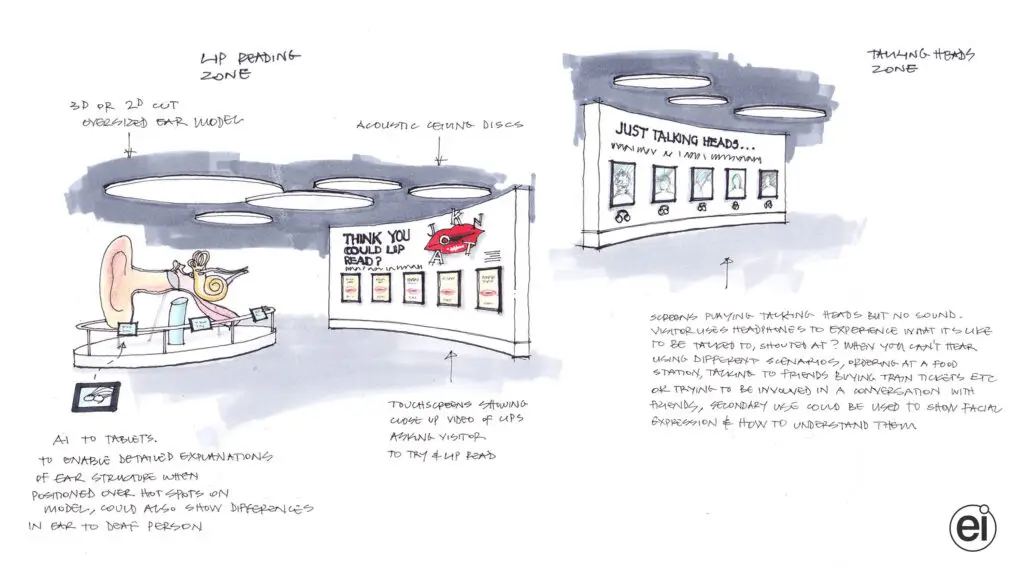 LIP READING
ZONE
3D OR 2D CUT
OVERSIZED EAR MODEL
ACOUSTIC CEILING DISCS
THINK YOU
COULD LIP
READ?
J K N
A T
TOUCHSCREENS SHOWING
CLOSE UP VIDEO OF LIPS
ASKING VISITOR
TO TRY & LIP READ
AI TO TABLETS.
TO ENABLE DETAILED EXPLANATIONS
OF EAR STRUCTURE WHEN
POSITIONED OVER HOT SPOTS ON
MODEL, COULD ALSO SHOW DIFFERENCES
IN EAR TO DEAF PERSON
TALKING HEADS
ZONE
JUST TALKING HEADS...
SCREENS PLAYING TALKING HEADS BUT NO SOUND.
VISITOR USES HEADPHONES TO EXPERIENCE WHAT IT'S LIKE
TO BE TALKED TO, SHOUTED AT? WHEN YOU CAN'T HEAR
USING DIFFERENT SCENARIOS, ORDERING AT A FOOD
STATION, TALKING TO FRIENDS BUYING TRAIN TICKETS ETC
OR TRYING TO BE INVOLVED IN A CONVERSATION WITH
FRIENDS, SECONDARY USE COULD BE USED TO SHOW FACIAL
EXPRESSION & HOW TO UNDERSTAND THEM
ei